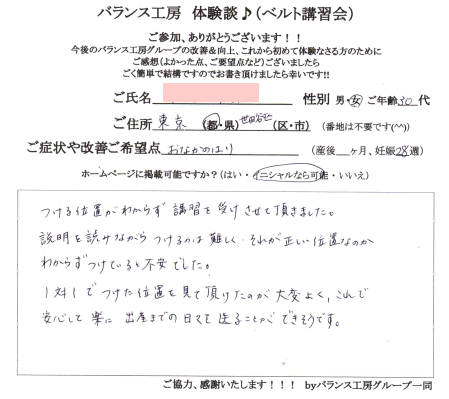 バランス工房 体験談♪(ベルト講習会)
ご参加、ありがとうございます!!
今後のバランス工房グループの改善&向上、これから初めて体験なさる方のために
ご感想(よかった点、ご要望点など)ございましたら
ごく簡単で結構ですのでお書き頂けましたら幸いです!!
ご氏名 性別 男・女 ご年齢30代
ご住所 東京 (都・県) 世田谷 (区・市) (番地は不要です(^^))
ご症状や改善ご希望点 おなかのはり (産後 ヶ月、妊娠28週)
ホームページに掲載可能ですか?(はい・イニシャルなら可能・いいえ)
つける位置がわからず 講習を受けさせて頂きました。
説明を読みながらつけるのは難しく、それが正しい位置なのか
わからずつけていると不安でした。
1対1でつけた位置を見て頂けたのが大変よく、これで
安心して楽に 出産までの日々を送ることができそうです。
ご協力、感謝いたします!!! byバランス工房グループ一同